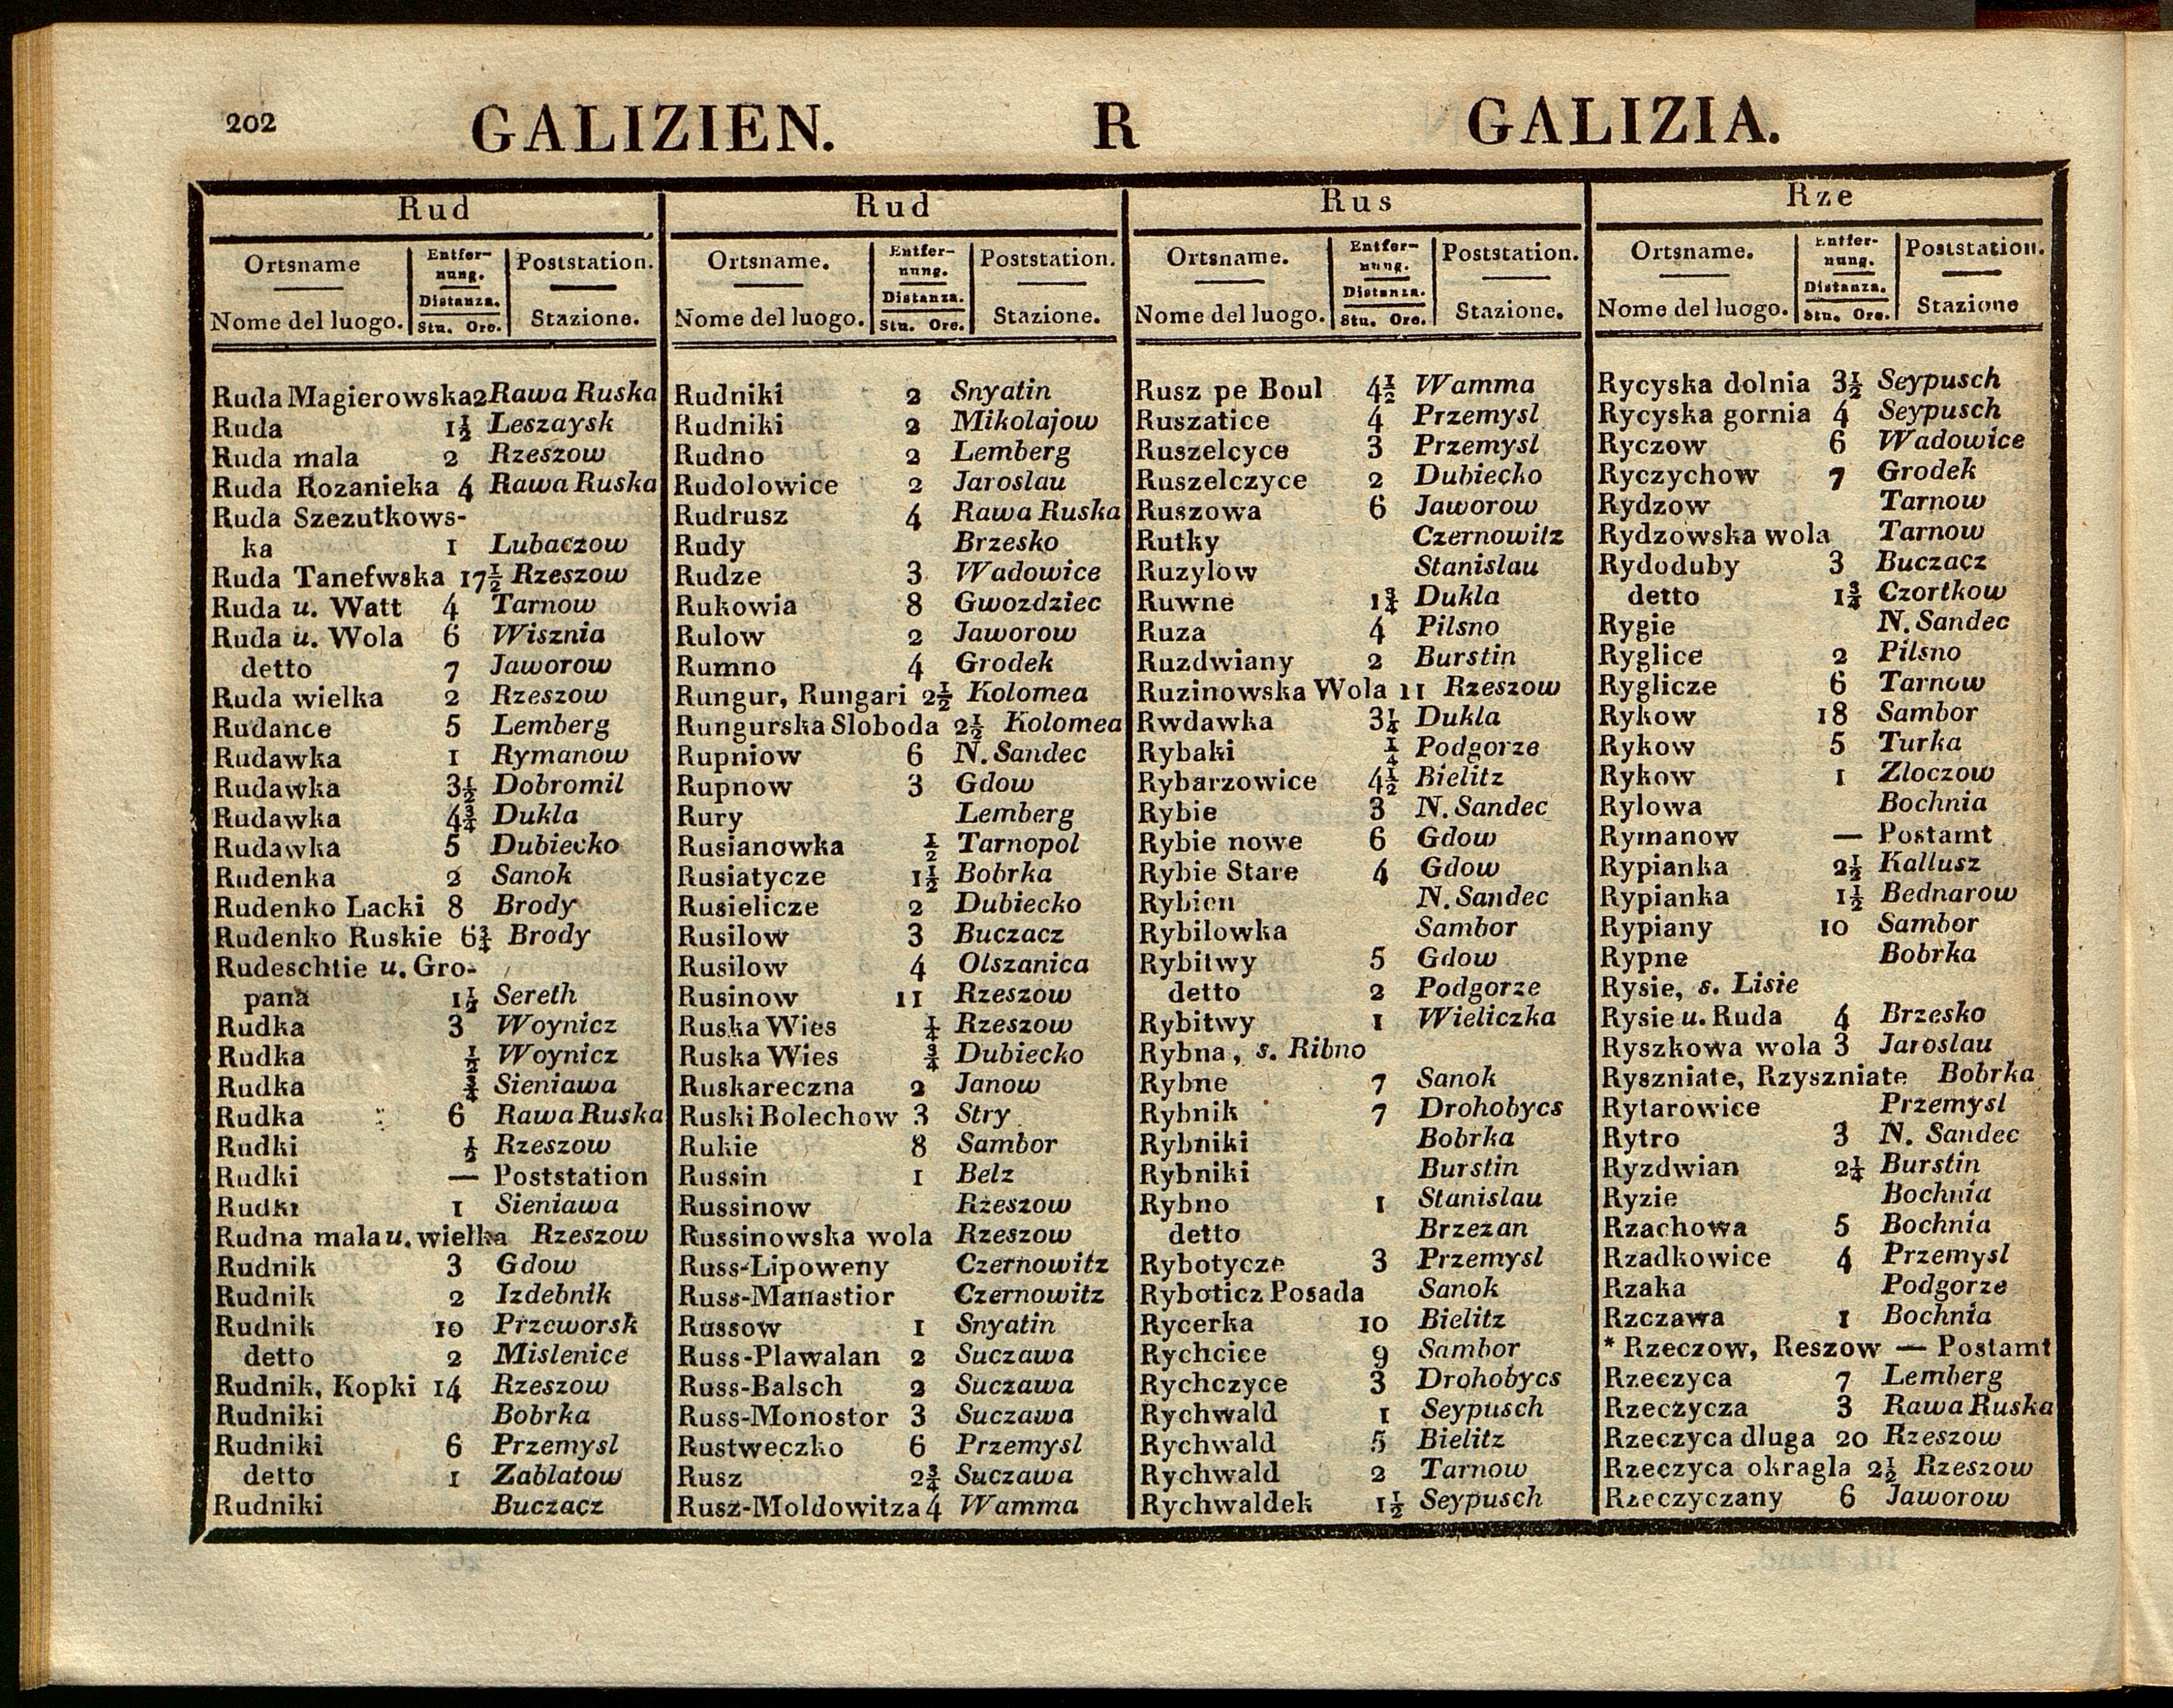 202
GALIZIEN. R GALIZIA.
Rud
Ortsname Entfernung. Poststation.
Nome del luogo. Distanza. Stu. Ore. Stazione.
Ruda Magierowska 2 Rawa Ruska
Ruda 1½ Leszaysk
Ruda mala 2 Rzeszow
Ruda Rozanieka 4 Rawa Ruska
Ruda Szezutkows-
ka 1 Lubaczow
Ruda Tanefwska 17½ Rzeszow
Ruda u. Watt 4 Tarnow
Ruda u. Wola 6 Wisznia
detto 7 Jaworow
Ruda wielka 2 Rzeszow
Rudance 5 Lemberg
Rudawka 1 Rymanow
Rudawka 3½ Dobromil
Rudawka 4¾ Dukla
Rudawka 5 Dubiecko
Rudenka 2 Sanok
Rudenko Lacki 8 Brody
Rudenko Ruskie 6¾ Brody
Rudeschtie u. Gro-
pana 1½ Sereth
Rudka 3 Woynicz
Rudka ½ Woynicz
Rudka ¾ Sieniawa
Rudka 6 Rawa Ruska
Rudki ½ Rzeszow
Rudki — Poststation
Rudki 1 Sieniawa
Rudna mala u. wielka Rzeszow
Rudnik 3 Gdow
Rudnik 2 Izdebnik
Rudnik 10 Przeworsk
detto 2 Mislenice
Rudnik, Kopki 14 Rzeszow
Rudniki Bobrka
Rudniki 6 Przemysl
detto 1 Zablatow
Rudniki Buczacz
Rud
Ortsname. Entfernung. Poststation.
Nome del luogo. Distanza. Stu. Ore. Stazione.
Rudniki 2 Snyatin
Rudniki 2 Mikolajow
Rudno 2 Lemberg
Rudolowice 2 Jaroslau
Rudrusz 4 Rawa Ruska
Rudy Brzesko
Rudze 3 Wadowice
Rukowia 8 Gwozdziec
Rulow 2 Jaworow
Rumno 4 Grodek
Rungur, Rungari 2½ Kolomea
Rungurska Sloboda 2½ Kolomea
Rupniow 6 N. Sandec
Rupnow 3 Gdow
Rury Lemberg
Rusianowka ½ Tarnopol
Rusiatycze 1½ Bobrka
Rusielicze 2 Dubiecko
Rusilow 3 Buczacz
Rusilow 4 Olszanica
Rusinow 11 Rzeszow
Ruska Wies ¼ Rzeszow
Ruska Wies ¾ Dubiecko
Ruskareczna 2 Janow
Ruski Bolechow 3 Stry
Rukie 8 Sambor
Russin 1 Belz
Russinow Rzeszow
Russinowska wola Rzeszow
Russ-Lipoweny Czernowitz
Russ-Manastior Czernowitz
Russow 1 Snyatin
Russ-Plawalan 2 Suczawa
Russ-Balsch 2 Suczawa
Russ-Monostor 3 Suczawa
Rustweczko 6 Przemysl
Rusz 2¾ Suczawa
Rusz-Moldowitza 4 Wamma
Rus
Ortsname. Entfernung. Poststation.
Nome del luogo. Distanza. Stu. Ore. Stazione.
Rusz pe Boul 4½ Wamma
Ruszatice 4 Przemysl
Ruszelcyce 3 Przemysl
Ruszelczyce 2 Dubiecko
Ruszowa 6 Jaworow
Rutky Czernowitz
Ruzylow Stanislau
Ruwne 1¾ Dukla
Ruza 4 Pilsno
Ruzdwiany 2 Burstin
Ruzinowska Wola 11 Rzeszow
Rwdawka 3¼ Dukla
Rybaki ¼ Podgorze
Rybarzowice 4½ Bielitz
Rybie 3 N. Sandec
Rybie nowe 6 Gdow
Rybie Stare 4 Gdow
Rybien N. Sandec
Rybilowka Sambor
Rybitwy 5 Gdow
detto 2 Podgorze
Rybitwy 1 Wieliczka
Rybna, s. Ribno
Rybne 7 Sanok
Rybnik 7 Drohobycs
Rybniki Bobrka
Rybniki Burstin
Rybno 1 Stanislau
detto Brzezan
Rybotycze 3 Przemysl
Ryboticz Posada Sanok
Rycerka 10 Bielitz
Rychcice 9 Sambor
Rychczyce 3 Drohobycs
Rychwald 1 Seypusch
Rychwald 5 Bielitz
Rychwald 2 Tarnow
Rychwaldek 1½ Seypusch
Rze
Ortsname. Entfernung. Poststation.
Nome del luogo. Distanza. Stu. Ore. Stazione
Rycyska dolnia 3½ Seypusch
Rycyska gornia 4 Seypusch
Ryczow 6 Wadowice
Ryczychow 7 Grodek
Rydzow Tarnow
Rydzowska wola Tarnow
Rydoduby 3 Buczacz
detto 1¾ Czortkow
Rygie N. Sandec
Ryglice 2 Pilsno
Ryglicze 6 Tarnow
Rykow 18 Sambor
Rykow 5 Turka
Rykow 1 Zloczow
Rylowa Bochnia
Rymanow — Postamt
Rypianka 2½ Kallusz
Rypianka 1½ Bednarow
Rypiany 10 Sambor
Rypne Bobrka
Rysie, s. Lisie
Rysie u. Ruda 4 Brzesko
Ryszkowa wola 3 Jaroslau
Ryszniate, Rzyszniate Bobrka
Rytarowice Przemysl
Rytro 3 N. Sandec
Ryzdwian 2¼ Burstin
Ryzie Bochnia
Rzachowa 5 Bochnia
Rzadkowice 4 Przemysl
Rzaka Podgorze
Rzczawa 1 Bochnia
* Rzeczow, Reszow — Postamt
Rzeczyca 7 Lemberg
Rzeczycza 3 Rawa Ruska
Rzeczyca dluga 20 Rzeszow
Rzeczyca okragla 2½ Rzeszow
Rzeczyczany 6 Jaworow